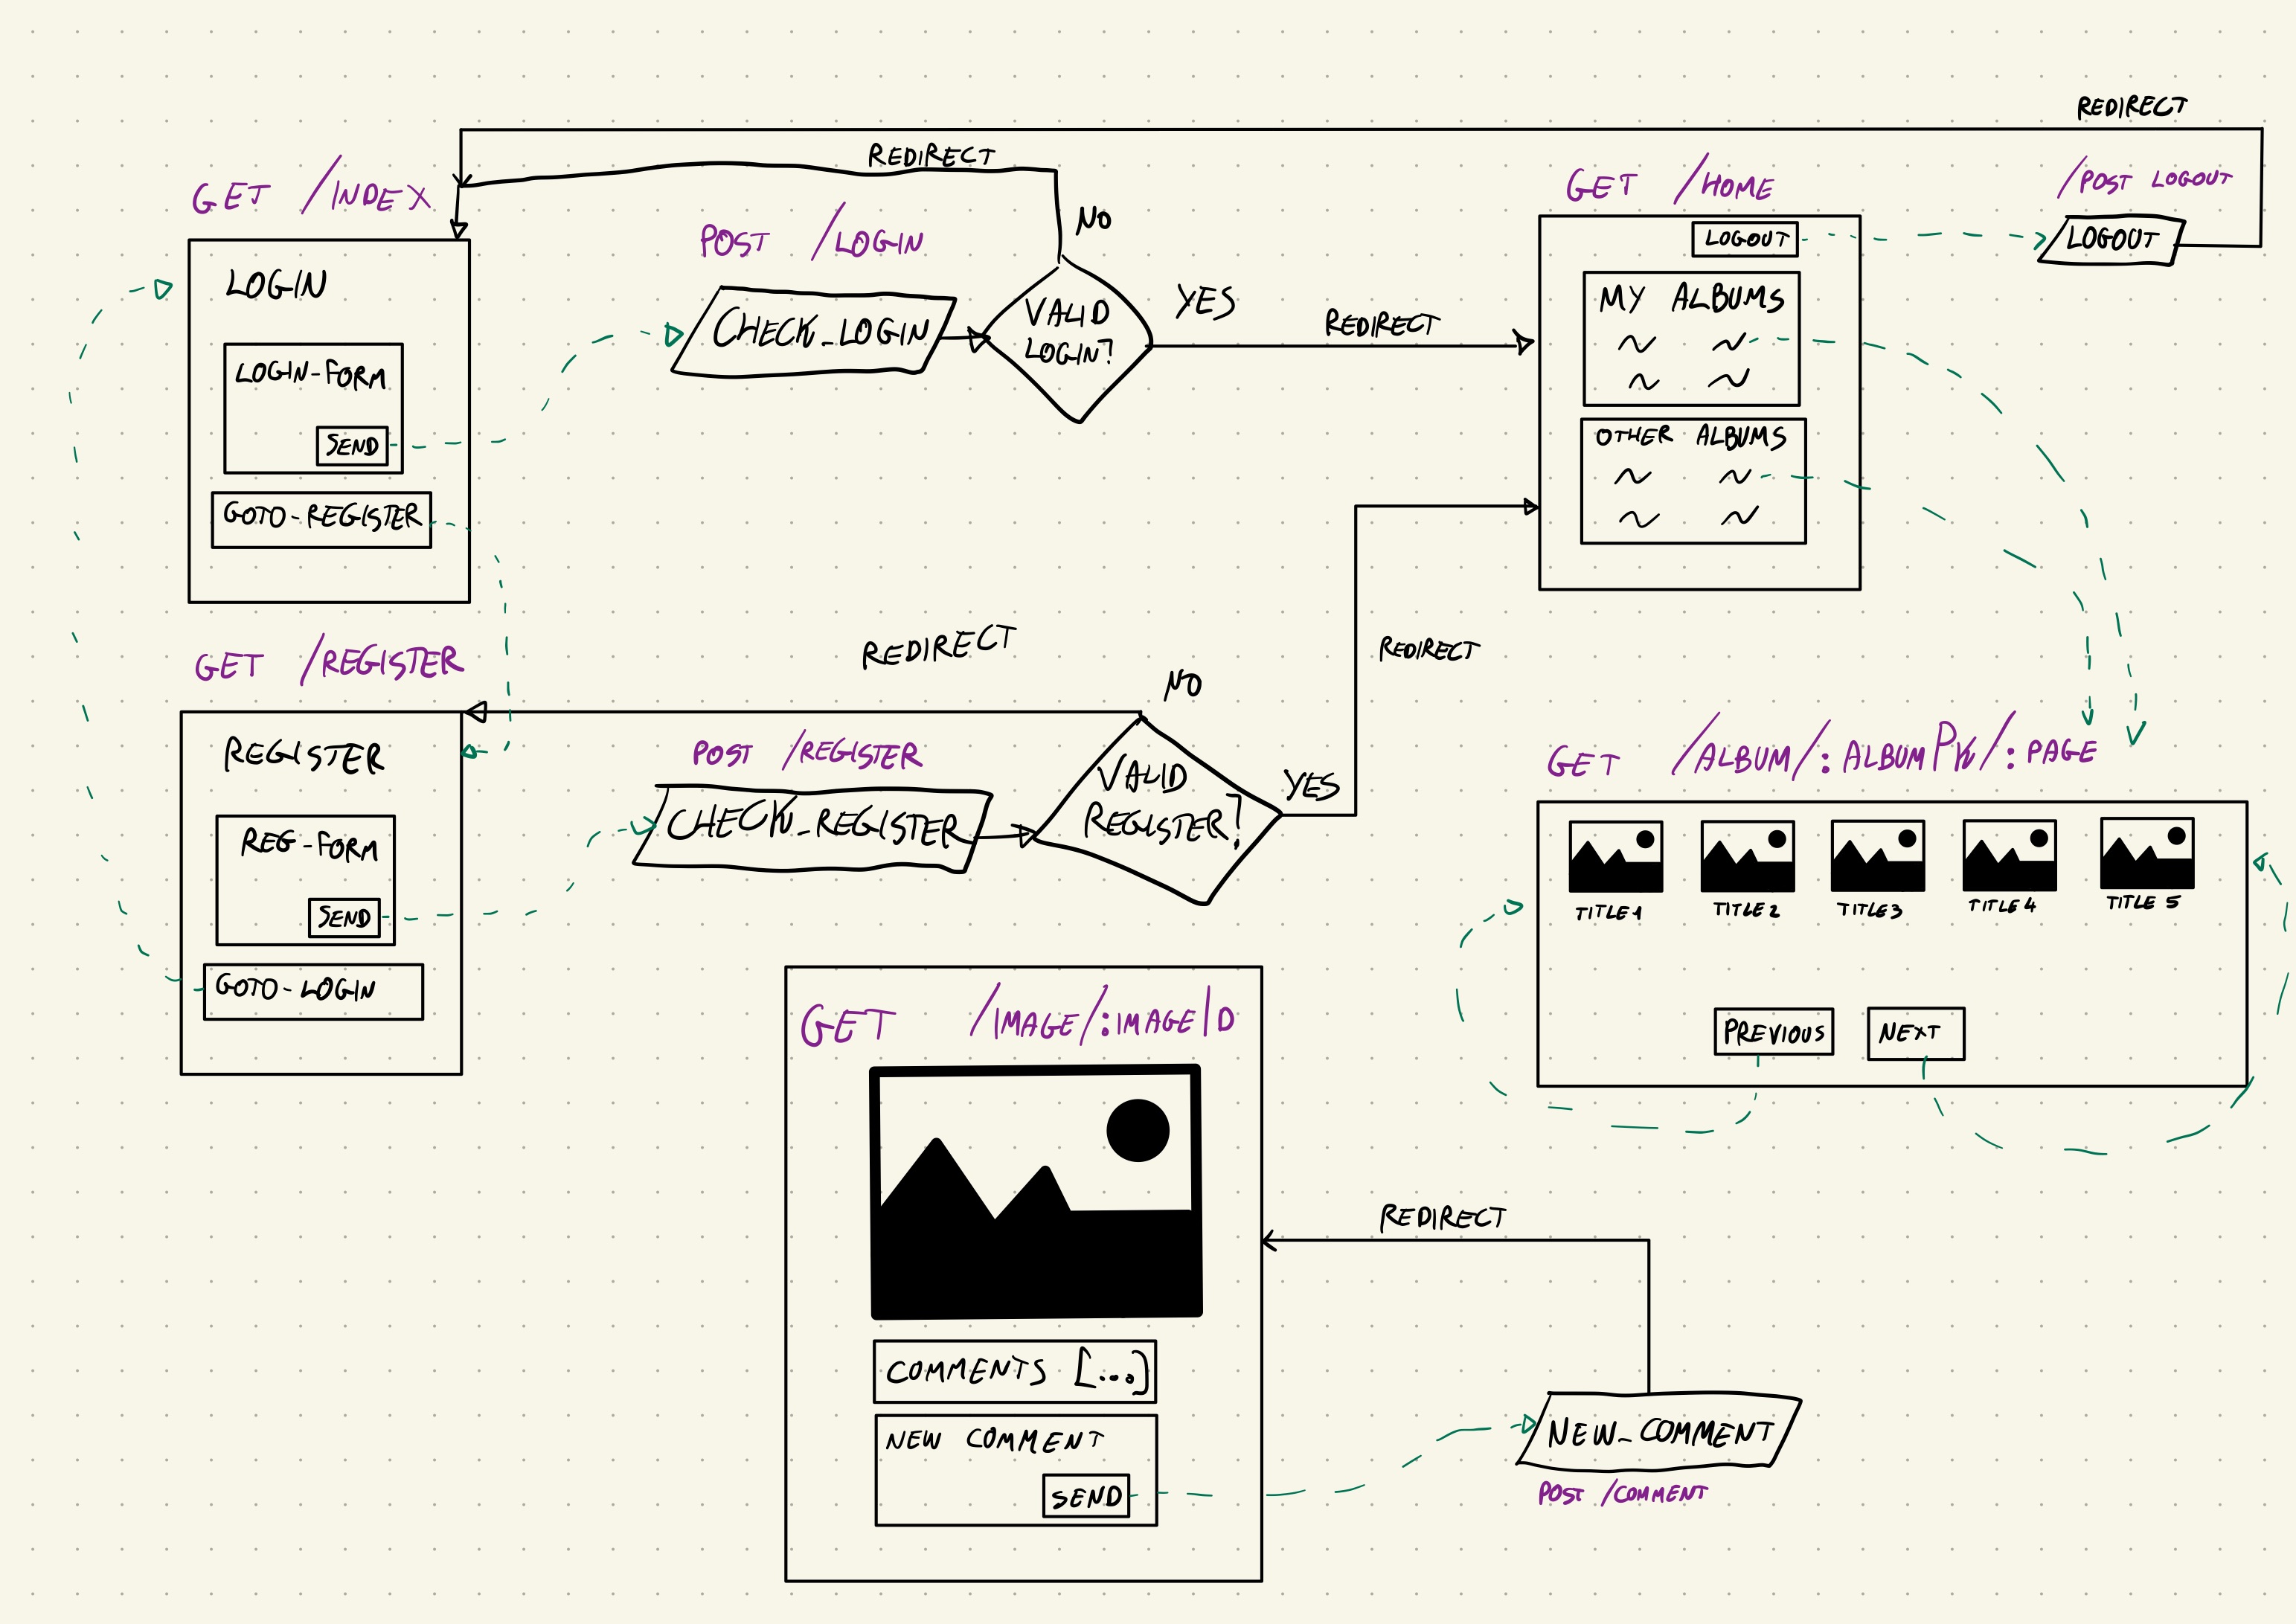 REDIRECT
REDIRECT
GET /INDEX
LOGIN
LOGIN-FORM
SEND
GOTO-REGISTER
POST /LOGIN
CHECK_LOGIN
VALID
LOGIN?
NO
YES
REDIRECT
GET /HOME
LOGOUT
MY ALBUMS
OTHER ALBUMS
/POST LOGOUT
LOGOUT
GET /REGISTER
REGISTER
REG-FORM
SEND
GOTO-LOGIN
REDIRECT
POST /REGISTER
CHECK_REGISTER
VALID
REGISTER?
NO
YES
REDIRECT
GET /ALBUM/:ALBUMPK/:PAGE
TITLE1
TITLE2
TITLE3
TITLE4
TITLE5
PREVIOUS
NEXT
GET /IMAGE/:IMAGEID
COMMENTS [...]
NEW COMMENT
SEND
REDIRECT
NEW_COMMENT
POST /COMMENT